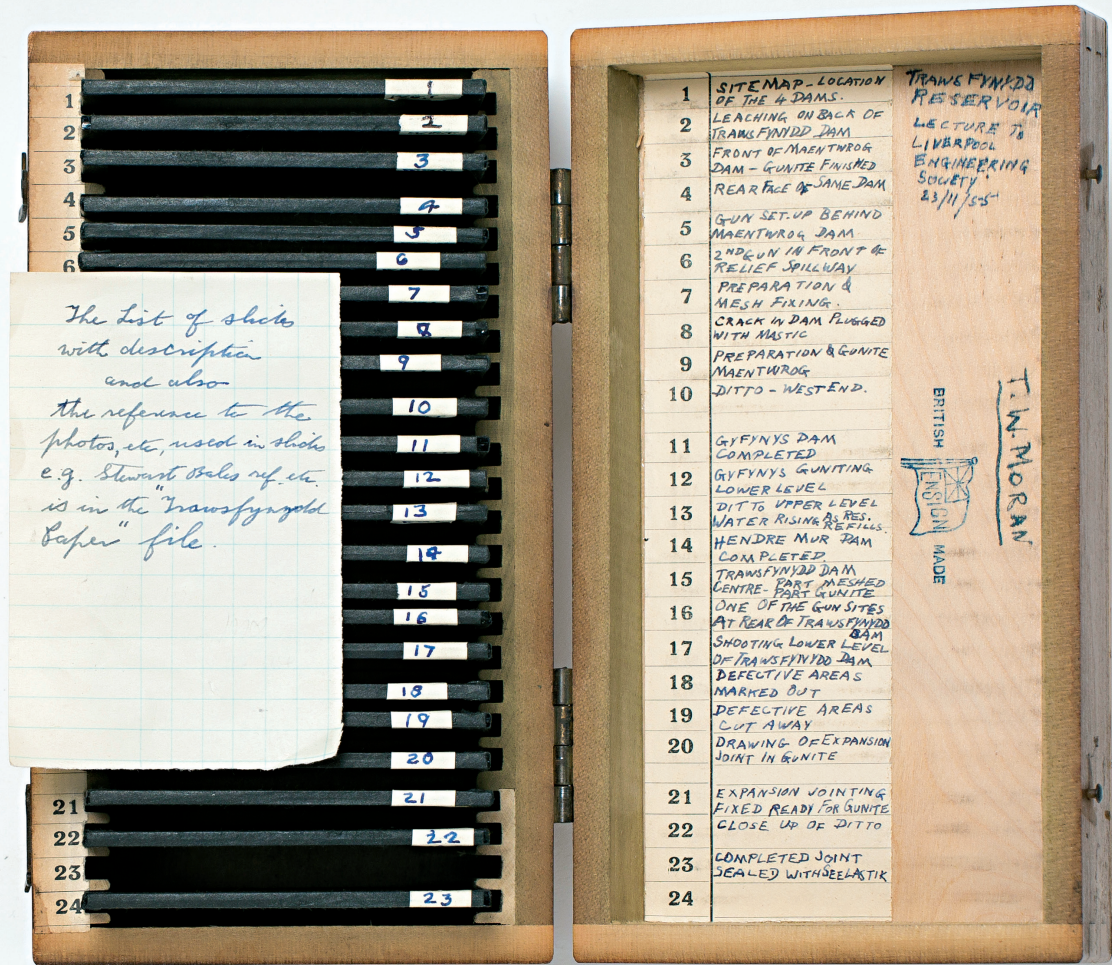 1
2
3
4
5
6
21
22
23
24
1
2
3
4
5
6
7
8
9
10
11
12
13
14
15
16
17
18
19
20
21
22
23
The List of slides
with description
and also
the reference to the
photos, etc, used in slides
e.g. Stewart Bales ref. etc.
is in the "Trawsfyngold
Paper" file.
1 SITE MAP - LOCATION
OF THE 4 DAMS.
2 LEACHING ON BACK OF
TRAWSFYNYDD DAM
3 FRONT OF MAENTWROG
DAM - GUNITE FINISHED
4 REAR FACE OF SAME DAM
5 GUN SET-UP BEHIND
MAENTWROG DAM.
6 2ND GUN IN FRONT OF
RELIEF SPILLWAY
7 PREPARATION &
MESH FIXING.
8 CRACK IN DAM PLUGGED
WITH MASTIC
9 PREPARATION & GUNITE
MAENTWROG
10 DITTO - WEST END.
11 GYFYNYS DAM
COMPLETED
12 GYFYNYS GUNITING
LOWER LEVEL
13 DITTO UPPER LEVEL
WATER RISING AS RES.
REFILLS.
14 HENDRE MUR DAM
COMPLETED
15 TRAWSFYNYDD DAM
CENTRE - PART MESHED
PART GUNITE
16 ONE OF THE GUN SITES
AT REAR OF TRAWSFYNYDD
DAM
17 SHOOTING LOWER LEVEL
OF TRAWSFYNYDD DAM
18 DEFECTIVE AREAS
MARKED OUT
19 DEFECTIVE AREAS
CUT AWAY
20 DRAWING OF EXPANSION
JOINT IN GUNITE
21 EXPANSION JOINTING
FIXED READY FOR GUNITE
22 CLOSE UP OF DITTO
23 COMPLETED JOINT
SEALED WITH SEELASTIK
24
TRAWSFYNYDD
RESERVOIR
LECTURE TO
LIVERPOOL
ENGINEERING
SOCIETY.
23/11/55
T. W. MORAN
BRITISH
ENSIGN
MADE